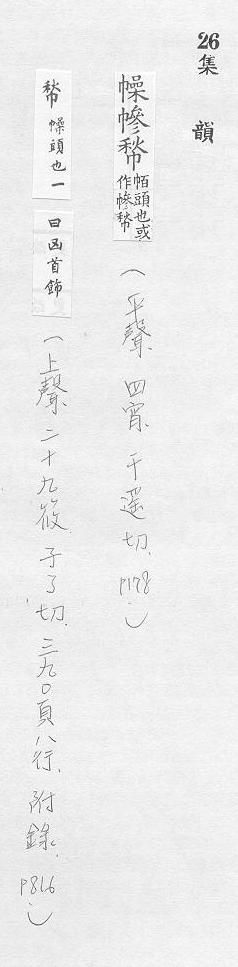 26 集韻
幧幓㡑帞頭也或作幓㡑（平聲、四宵、千遥切、P178、）
㡑 幧頭也一曰凶首飾（上聲、二十九筱、子了切、三九〇頁八行、附錄、P816、）